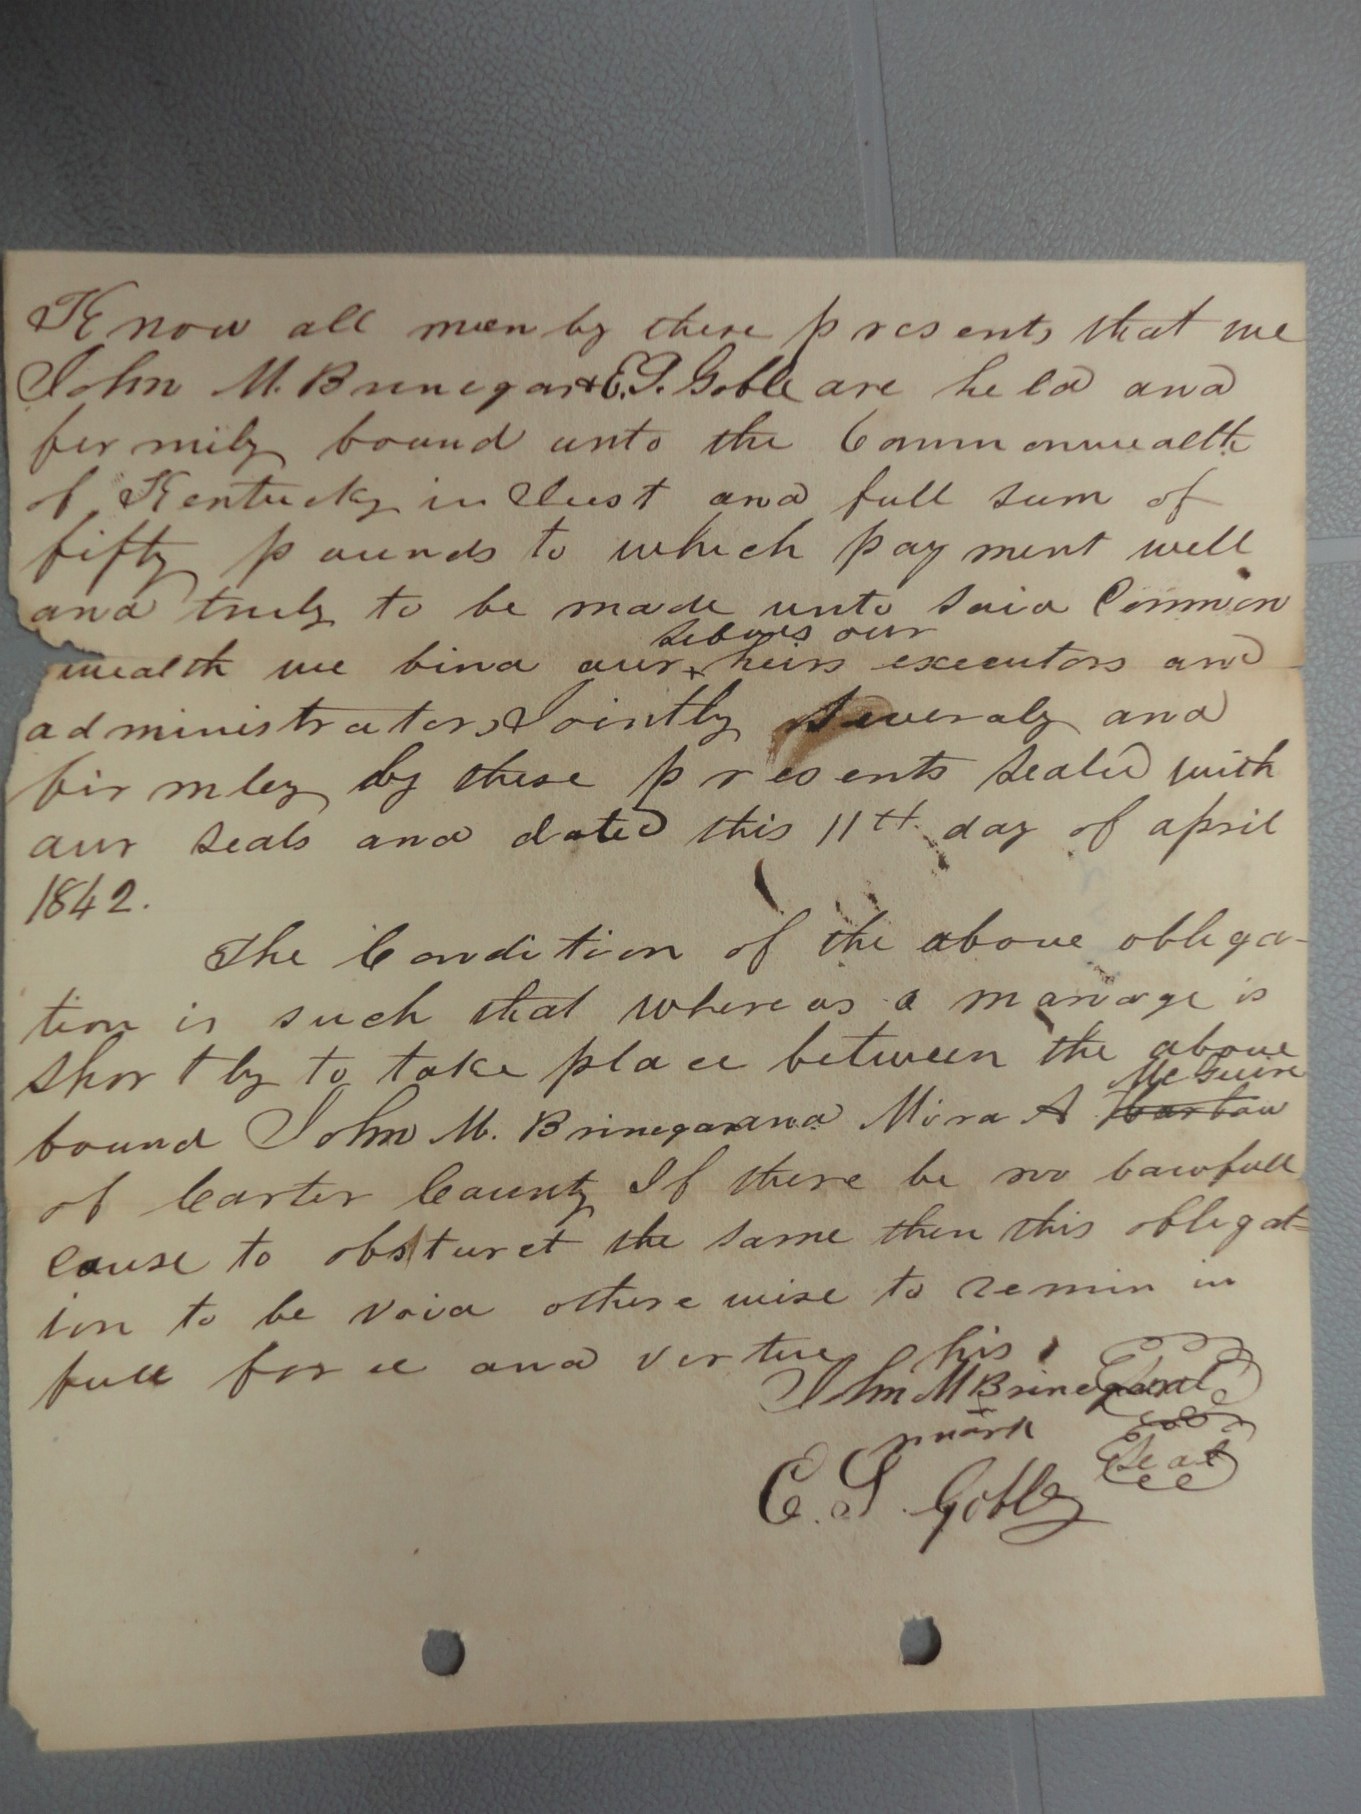 Know all men by these presents that we
John M. Brinegar & E. S. Goble are held and
firmily bound unto the Commonwealth
of Kentucky in Just and full sum of
fifty pounds to which payment well
and truly to be made unto said Common
selves our
wealth we bind our x heirs executors and
administrators, Jointly Severaly and
firmley by these presents sealed with
our seals and dated this 11th day of april
1842.
The Condition of the above obliga-
tion is such that whereas a marage is
shortly to take place between the above
McGuire
bound John M. Brinegar and Mira A
of Carter County If there be no lawfull
cause to obsturct the same then this obligat=
ion to be void otherewise to remin in
full force and vertue his
John M Brinegar Seal
x
mark
E. S. Goble Seal